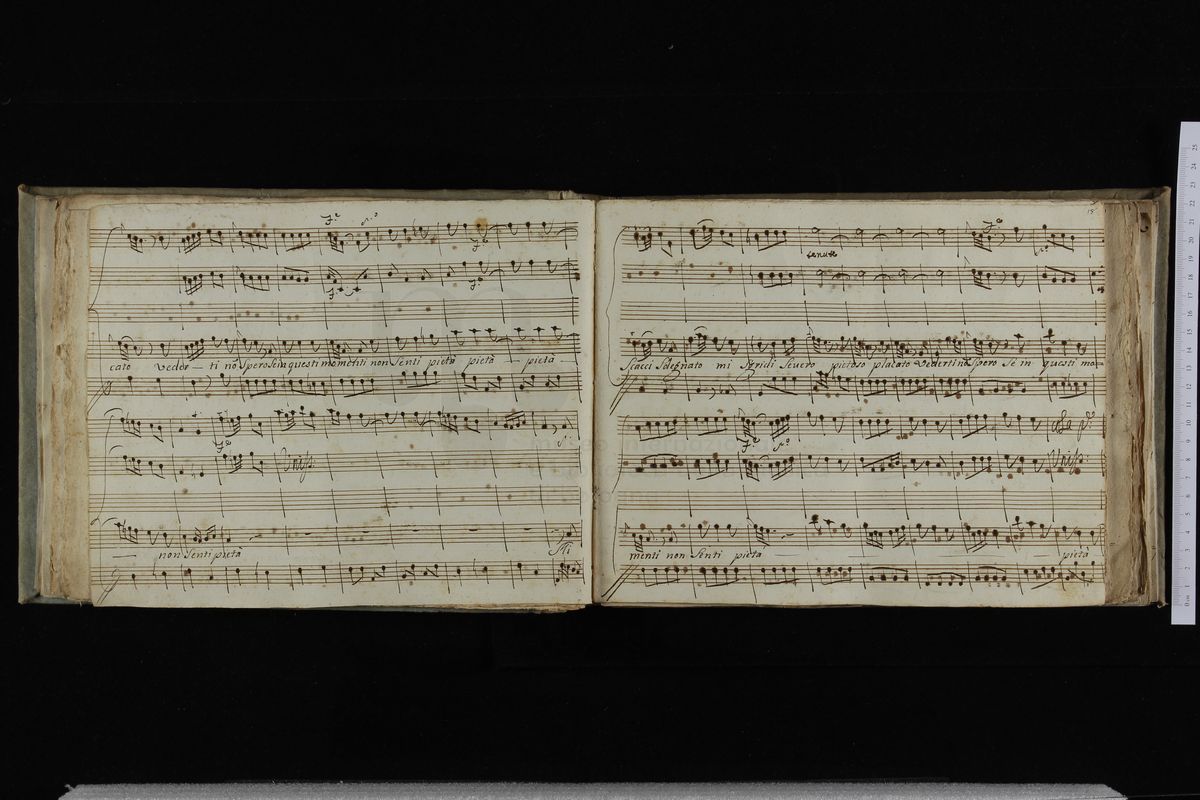 F.e
cato veder — ti nõ spero se in questi momenti non senti pietà pietà — pietà
Fe
Unis.
— non senti pietà
Mi
15
tenute
Fe
scacci sdegnato mi sgridi severo pietoso placato vederti nõ spero se in questi mo
Fe
Unis.
menti non senti pietà — pietà